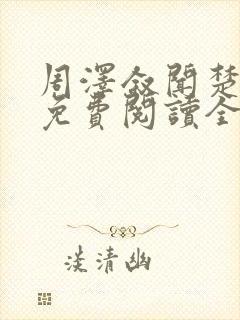 周澤敘聞楚
免費閱讀全
淡清幽